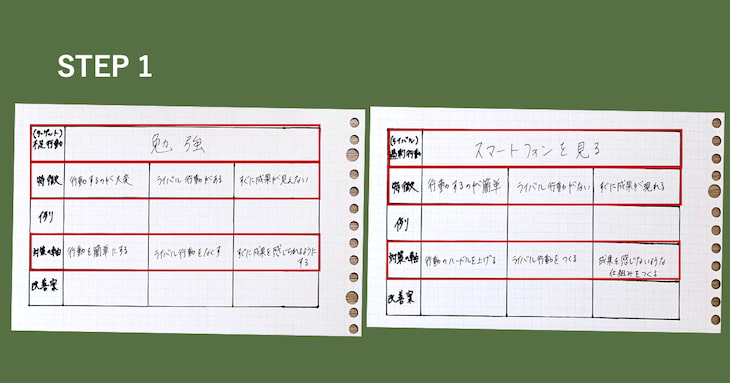 STEP 1
(ターゲット)
不足行動
勉強
特徴
行動するのが大変
ライバル行動がある
すぐに成果が見えない
例
対策の軸
行動を簡単にする
ライバル行動をなくす
すぐに成果を感じられるように
する
改善案
(ライバル)
過剰行動
スマートフォンを見る
特徴
行動するのが簡単
ライバル行動がない
すぐに成果が現れる
例
対策の軸
行動のハードルを上げる
ライバル行動をつくる
成果を感じないような
仕組みをつくる
改善案